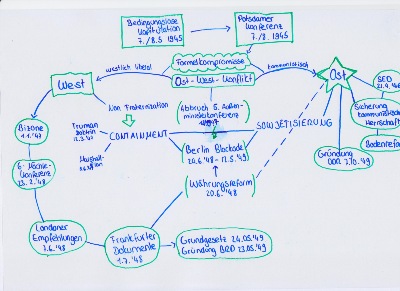 Bedingungslose
Kapitulation
7./8.5 1945
Potsdamer
Konferenz
7./8. 1945
Formelkompromisse
westlich liberal
kommunistisch
West
Ost-West-Konflikt
Ost
SED
Non Fraternization
Abbruch 5. Außen-
ministerkonferenz
Bizone
1.1.'47
Truman
Doktrin
12.3.'47
CONTAINMENT
SOWJETISIERUNG
Sicherung
kommunistische
Herrschaft
Marshall-
Berlin Blockade
24.6.'48 - 12.5.'49
Bodenreform
Gründung
DDR 7.10.'49
6-Mächte-
Konferenz
23.2.'48
Währungsreform
20.6.'48
Londoner
Empfehlungen
7.6.'48
Frankfurter
Dokumente
1.7.'48
Grundgesetz 24.05.'49
Gründung BRD 23.05.'49